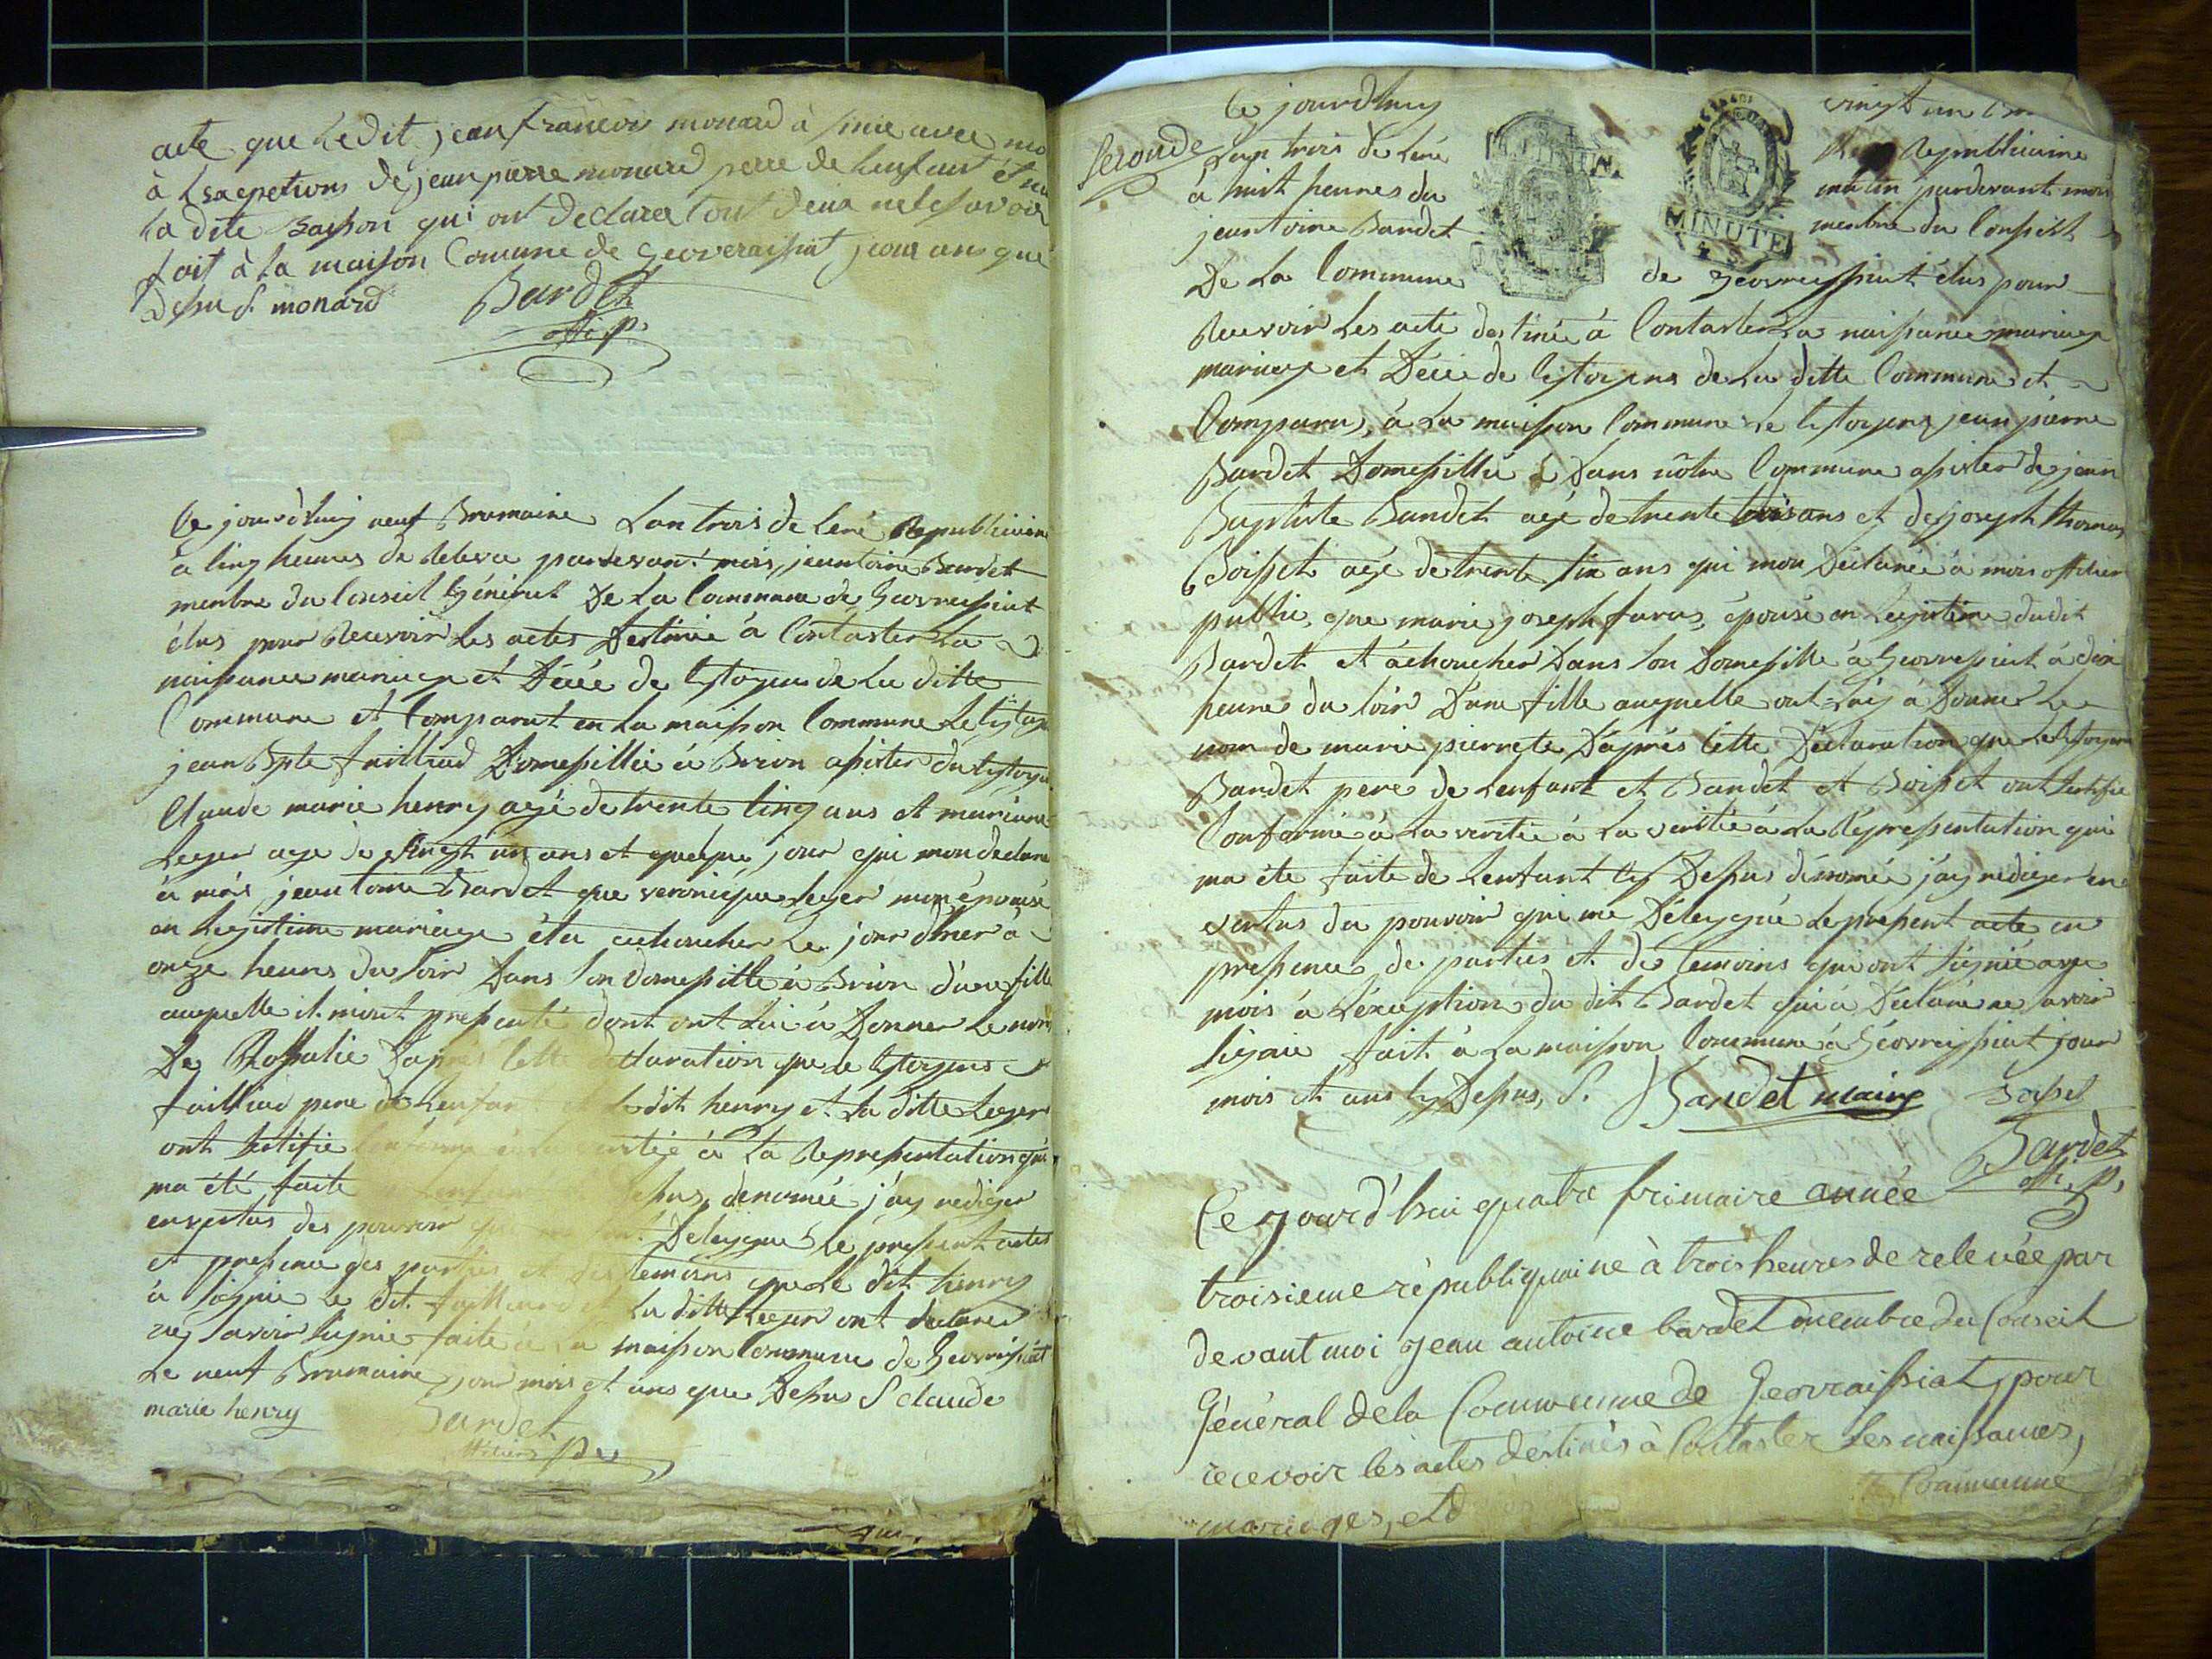 acte que Ledit jean francois monard à sinie avec mo
à Lsaepetions de jean pierre monard perre de Lenfant et
La dite Basson qui ont declarer tout deux ne le savoir
fait à la maison Comune de geovreissiat jour ans que
Desus S. monard Bardet
offi. p.
Ce jourdhuy neuf Brumaire Lan trois de Leré Republiciaine
à cinq heures de Releve pardevant mois, jeantoine Bardet
membre du Conseil Général De La Commune de Geovreissiat
élus pour Recevoir Les actes Destinée à Contaster La
naissance mariage et Décée de Cytoyens de La ditte
Commune et Comparut en La maison Commune Le Cytoy
jean Bpte faillard Domessillié à Brion assister du Cytoyen
Claude marie henry agé de trente cinq ans et mariane
Leger age de vingt un ans et quelque jour qui mon declaré
à mois jeantoine Bardet que veronique Leger mon épouse
en Legistime mariage éta achoucher Le jour dhier à
onze heures du soir Dans son domessille à Brion d'une fille
auquelle il mont presenté dont ont Lui à Donner Le nom
De Rossalie D'après Cette declaration que Le Cytoyens
faillard pere de Lenfant et Ledit henry et La ditte Leger
ont sertifie Conforme à La veritée à La Representation qui
ma été faite de Lenfant desus denomée j'ay rediger
en vertus des pouvoir qui me Delegue Le present actes
et presence des parties et des temoins que Le dit henry
à signie Le dit faillard et La ditte Leger ont declarer
ney savoir signie faite à La maison Commune de Geovreissiat
Le neuf Brumaire jour mois et ans que Desus S claude
marie henry Bardet
officier p
Seconde
Ce jourdhuy vingt un
Lan trois de Leré Republiciaine
à huit heures du matin pardevant mois
jeantoine Bardet membre du Conseil
De La Commune de geovreissiat élus pour
Recevoir Les acte destinée à Contaster La naissance mariage
mariage et Décée de Cytoyens de La ditte Commune et
Comparus, à La maison Commune Le Cytoyens jean pierre
Bardet Domessillié Dans nôtre Commune assister de jean
Baptiste Bandet agé de trente trois ans et de joseph thomas
Boisset agé de trente six ans qui mon Déclarée à mois officier
public, que marie joseph favas, épouse en Legistime dudit
Bardet et àchoucher Dans son Domessille à Geovressiat à dix
heures du soir D'une fille auquelle ont Luy à Donner Le
nom de marie pierrete D'après Cette Déclaration que Le Cytoyens
Bardet pere de Lenfant et Bandet et Boisset ont sertifie
Conforme à La veritée à La veritée à La Répressentation qui
ma éte faite de Lenfant Cy Desus dénomée j'ay rediger en
vertus du pouvoir qui me Délegue Le present acte en
presence de parties et de temoins qui ont signié avec
mois à L'exception du dit Bardet qui à Déclaré ne savoir
signie fait à La maison Commune à Géovreissiat jour
mois et ans Cy Desus, S. Bandet maire Boiset
Bardet
offi. p.
Ce jourd'hui quatre frimaire année
troisieme républiquaine à trois heures de relevée par
devant moi jean antoine bardet membre du Conseil
Général de la Commune de Geovraissiat, pour
recevoir les actes destinés à Contaster les naissances,
mariages, et d Commune